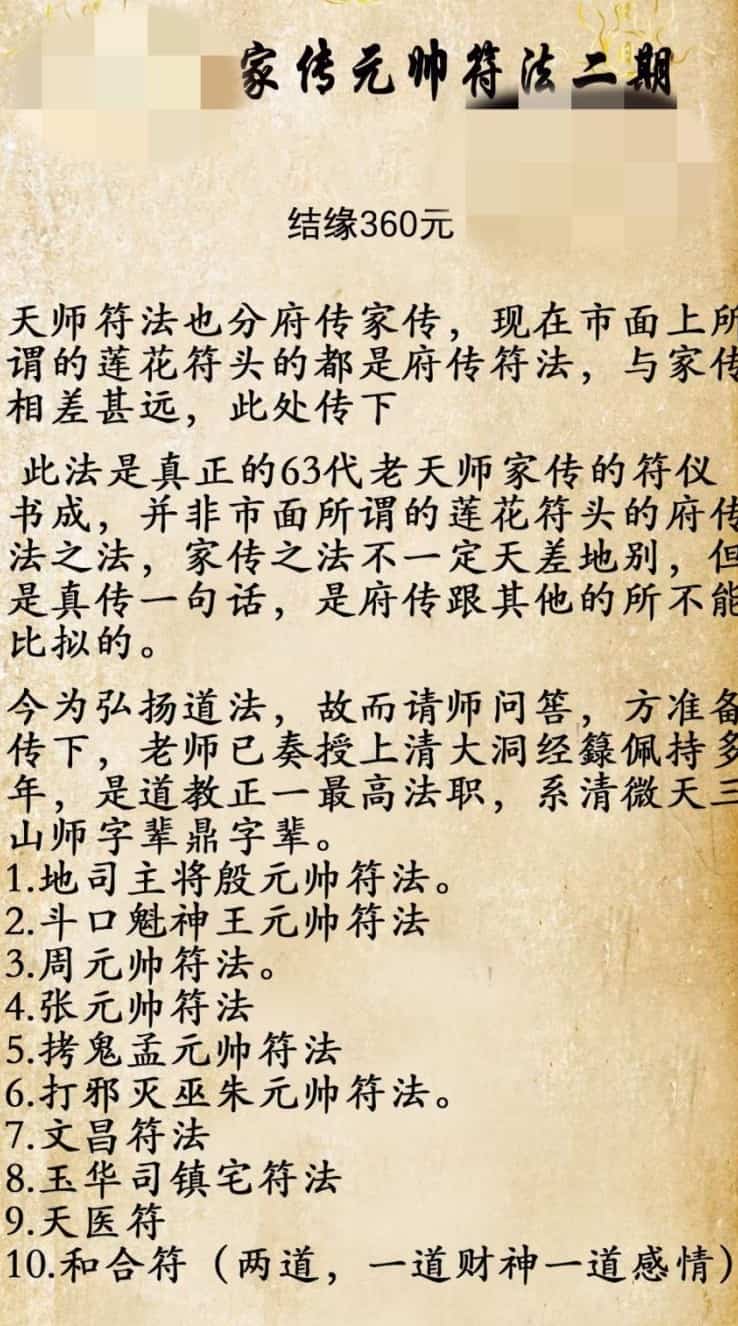 家传元帅符法二期
结缘360元
天师符法也分府传家传，现在市面上所
谓的莲花符头的都是府传符法，与家传
相差甚远，此处传下
此法是真正的63代老天师家传的符仪
书成，并非市面所谓的莲花符头的府传
法之法，家传之法不一定天差地别，但
是真传一句话，是府传跟其他的所不能
比拟的。
今为弘扬道法，故而请师问筶，方准备
传下，老师已奏授上清大洞经籙佩持多
年，是道教正一最高法职，系清微天三
山师字辈鼎字辈。
1.地司主将殷元帅符法。
2.斗口魁神王元帅符法
3.周元帅符法。
4.张元帅符法
5.拷鬼孟元帅符法
6.打邪灭巫朱元帅符法。
7.文昌符法
8.玉华司镇宅符法
9.天医符
10.和合符（两道，一道财神一道感情）